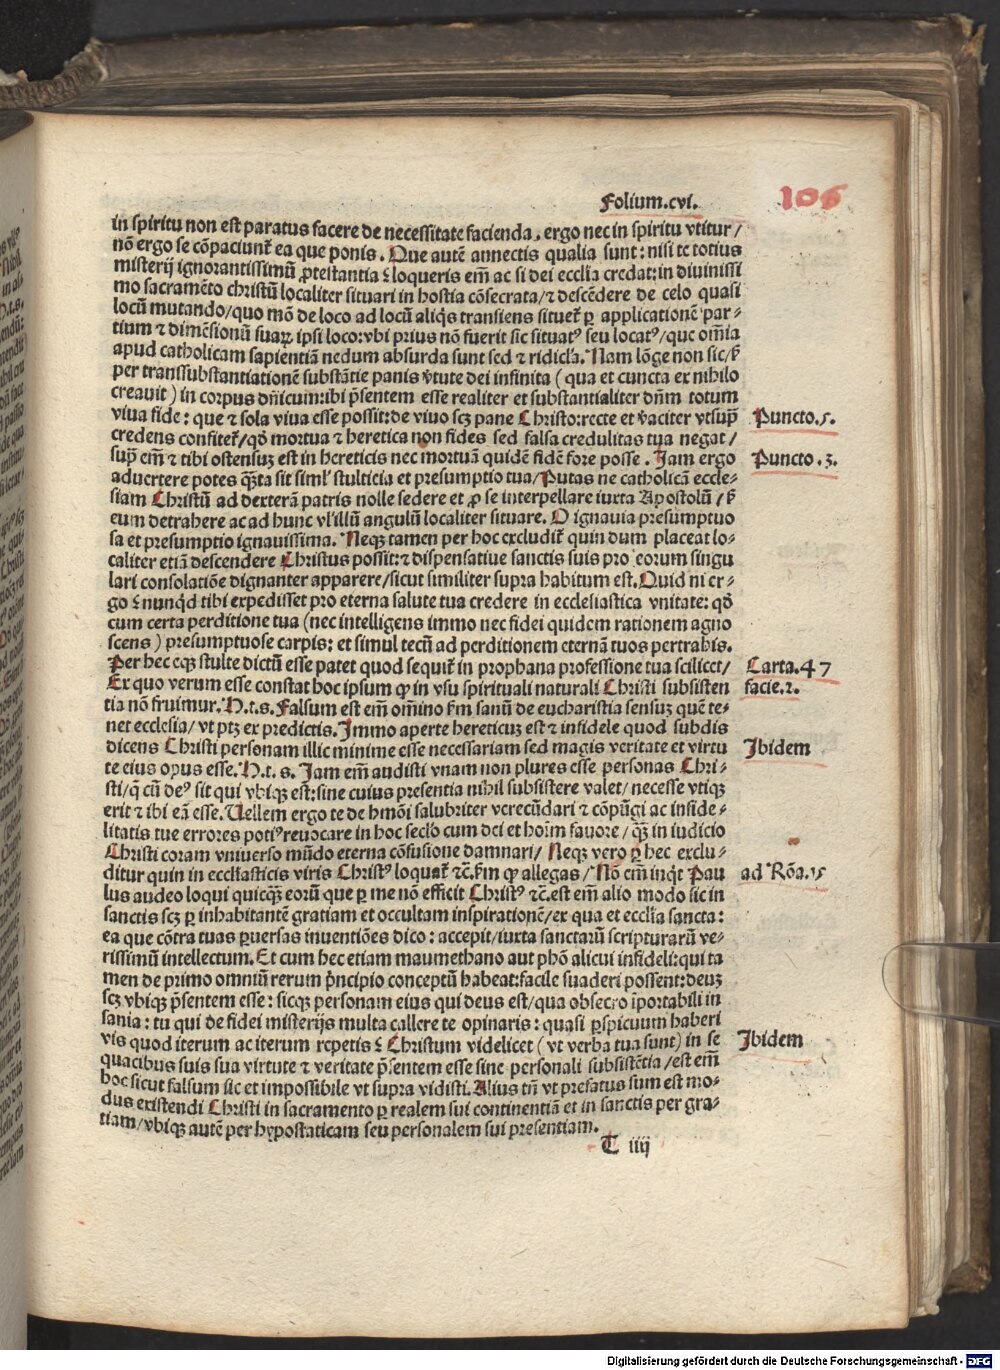 Folium.cvi.
106
in spiritu non est paratus facere de necessitate facienda, ergo nec in spiritu vtitur/
nō ergo se cōpaciunt̃ ea que ponis. Que autē annectis qualia sunt: nisi te totius
misterij ignorantissimū ꝓtestantia ⁊ loqueris em̄ ac si dei ecclīa credat: in diuinissi
mo sacramēto christū localiter situari in hostia cōsecrata/⁊ descēdere de celo quasi
locū mutando/quo mō de loco ad locū aliq̄s transiens situet̃ ꝑ applicationē par⸗
tium ⁊ dimēsionū suaꝝ ipsi loco: vbi prius nō fuerit sic situatꝰ seu locatꝰ/que om̄ia
apud catholicam sapientiā nedum absurda sunt sed ⁊ ridicl̄a. Nam lōge non sic/ß
per transsubstantiationē substātie panis v̄tute dei infinita (qua et cuncta ex nihilo
creauit) in corpus dn̄icum: ibi p̄sentem esse realiter et substantialiter dn̄m totum
viua fide: que ⁊ sola viua esse possit: de viuo scꝫ pane Christo: recte et v̄aciter vtsup̄
Puncto.5.
credens confitet̃/qḋ mortua ⁊ heretica non fides sed falsa credulitas tua negat/
sup̄ em̄ ⁊ tibi ostensuꝫ est in hereticis nec mortuā quidē fidē fore posse. Jam ergo
Puncto.3.
aduertere potes q̄ꝫta sit siml̄ stulticia et presumptio tua/Putas ne catholicā eccle⸗
siam Christū ad dexterā patris nolle sedere et ꝓ se interpellare iuxta Apostolū/ß
eum detrahere ac ad hunc vl̄ illū angulū localiter situare. O ignauia presumptuo
sa et presumptio ignauissima. Neqꝫ tamen per hoc excludit̃ quin dum placeat lo⸗
caliter etiā descendere Christus possit: ⁊ dispensatiue sanctis suis pro eorum singu
lari consolatiōe dignanter apparere/sicut similiter supra habitum est. Quid ni er⸗
go ⁊ nunq̇d tibi expedisset pro eterna salute tua credere in ecclesiastica vnitate: qḋ
cum certa perditione tua (nec intelligens immo nec fidei quidem rationem agno
scens) presumptuose carpis: et simul tecū ad perditionem eternā tuos pertrahis.
Per hec eqꝫ stulte dictū esse patet quod sequit̃ in prophana professione tua scilicet/
Carta.47
Ex quo verum esse constat hoc ipsum ꝙ in vsu spirituali naturali Christi subsisten
facie.2.
tia nō fruimur. N.t.s. Falsum est em̄ om̄ino ẜm sanū de eucharistia sensuꝫ quē te⸗
net ecclesia/vt ptꝫ ex predictis. Jmmo aperte hereticuꝫ est ⁊ infidele quod subdis
dicens Christi personam illic minime esse necessariam sed magis veritate et virtu
Jbidem
te eius opus esse. N.t.s. Jam em̄ audisti vnam non plures esse personas Chri⸗
sti/q̄ cū deꝰ sit qui vbiqꝫ est: sine cuius presentia nihil subsistere valet/necesse vtiqꝫ
erit ⁊ ibi eā esse. Uellem ergo te de hmōi salubriter verecūdari ⁊ cōpūgi ac infide⸗
litatis tue errores potiꝰ reuocare in hoc seclo cum dei et hoīm fauore/q̄ꝫ in iudicio
Christi coram vniuerso mūdo eterna cōfusione damnari/ Neqꝫ vero ꝑ hec exclu⸗
ditur quin in eccl̄iasticis viris Christꝰ loquat̃ ⁊c̄. ẜm ꝙ allegas/Nō em̄ inq̇t Pau
ad Rōa.15
lus audeo loqui quicq̄ꝫ eorū que ꝑ me nō efficit Christꝰ ⁊c̄. est em̄ alio modo sic in
sanctis scꝫ ꝑ inhabitantē gratiam et occultam inspirationē/ex qua et ecclīa sancta:
ea que cōtra tuas ꝑuersas inuentiōes dico: accepit/iuxta sanctarū scripturarū ve⸗
rissimū intellectum. Et cum hec etiam maumethano aut phō alicui infideli: qui ta
men de primo omniū rerum p̄ncipio conceptū habeat: facile suaderi possent: deuꝫ
scꝫ vbiqꝫ p̄sentem esse: sicqꝫ personam eius qui deus est/qua obsecro īportabili in
sania: tu qui de fidei misterijs multa callere te opinaris: quasi ꝑspicuum haberi
vis quod iterum ac iterum repetis ⁊ Christum videlicet (vt verba tua sunt) in se
Jbidem
quacibus suis sua virtute ⁊ veritate p̄sentem esse sine personali subsistētia/est em̄
hoc sicut falsum sic et impossibile vt supra vidisti. Alius tn̄ vt prefatus sum est mo⸗
dus existendi Christi in sacramento ꝑ realem sui continentiā et in sanctis per gra⸗
tiam/vbiqꝫ autē per hypostaticam seu personalem sui presentiam.
T iiij
Digitalisierung gefördert durch die Deutsche Forschungsgemeinschaft - DFG